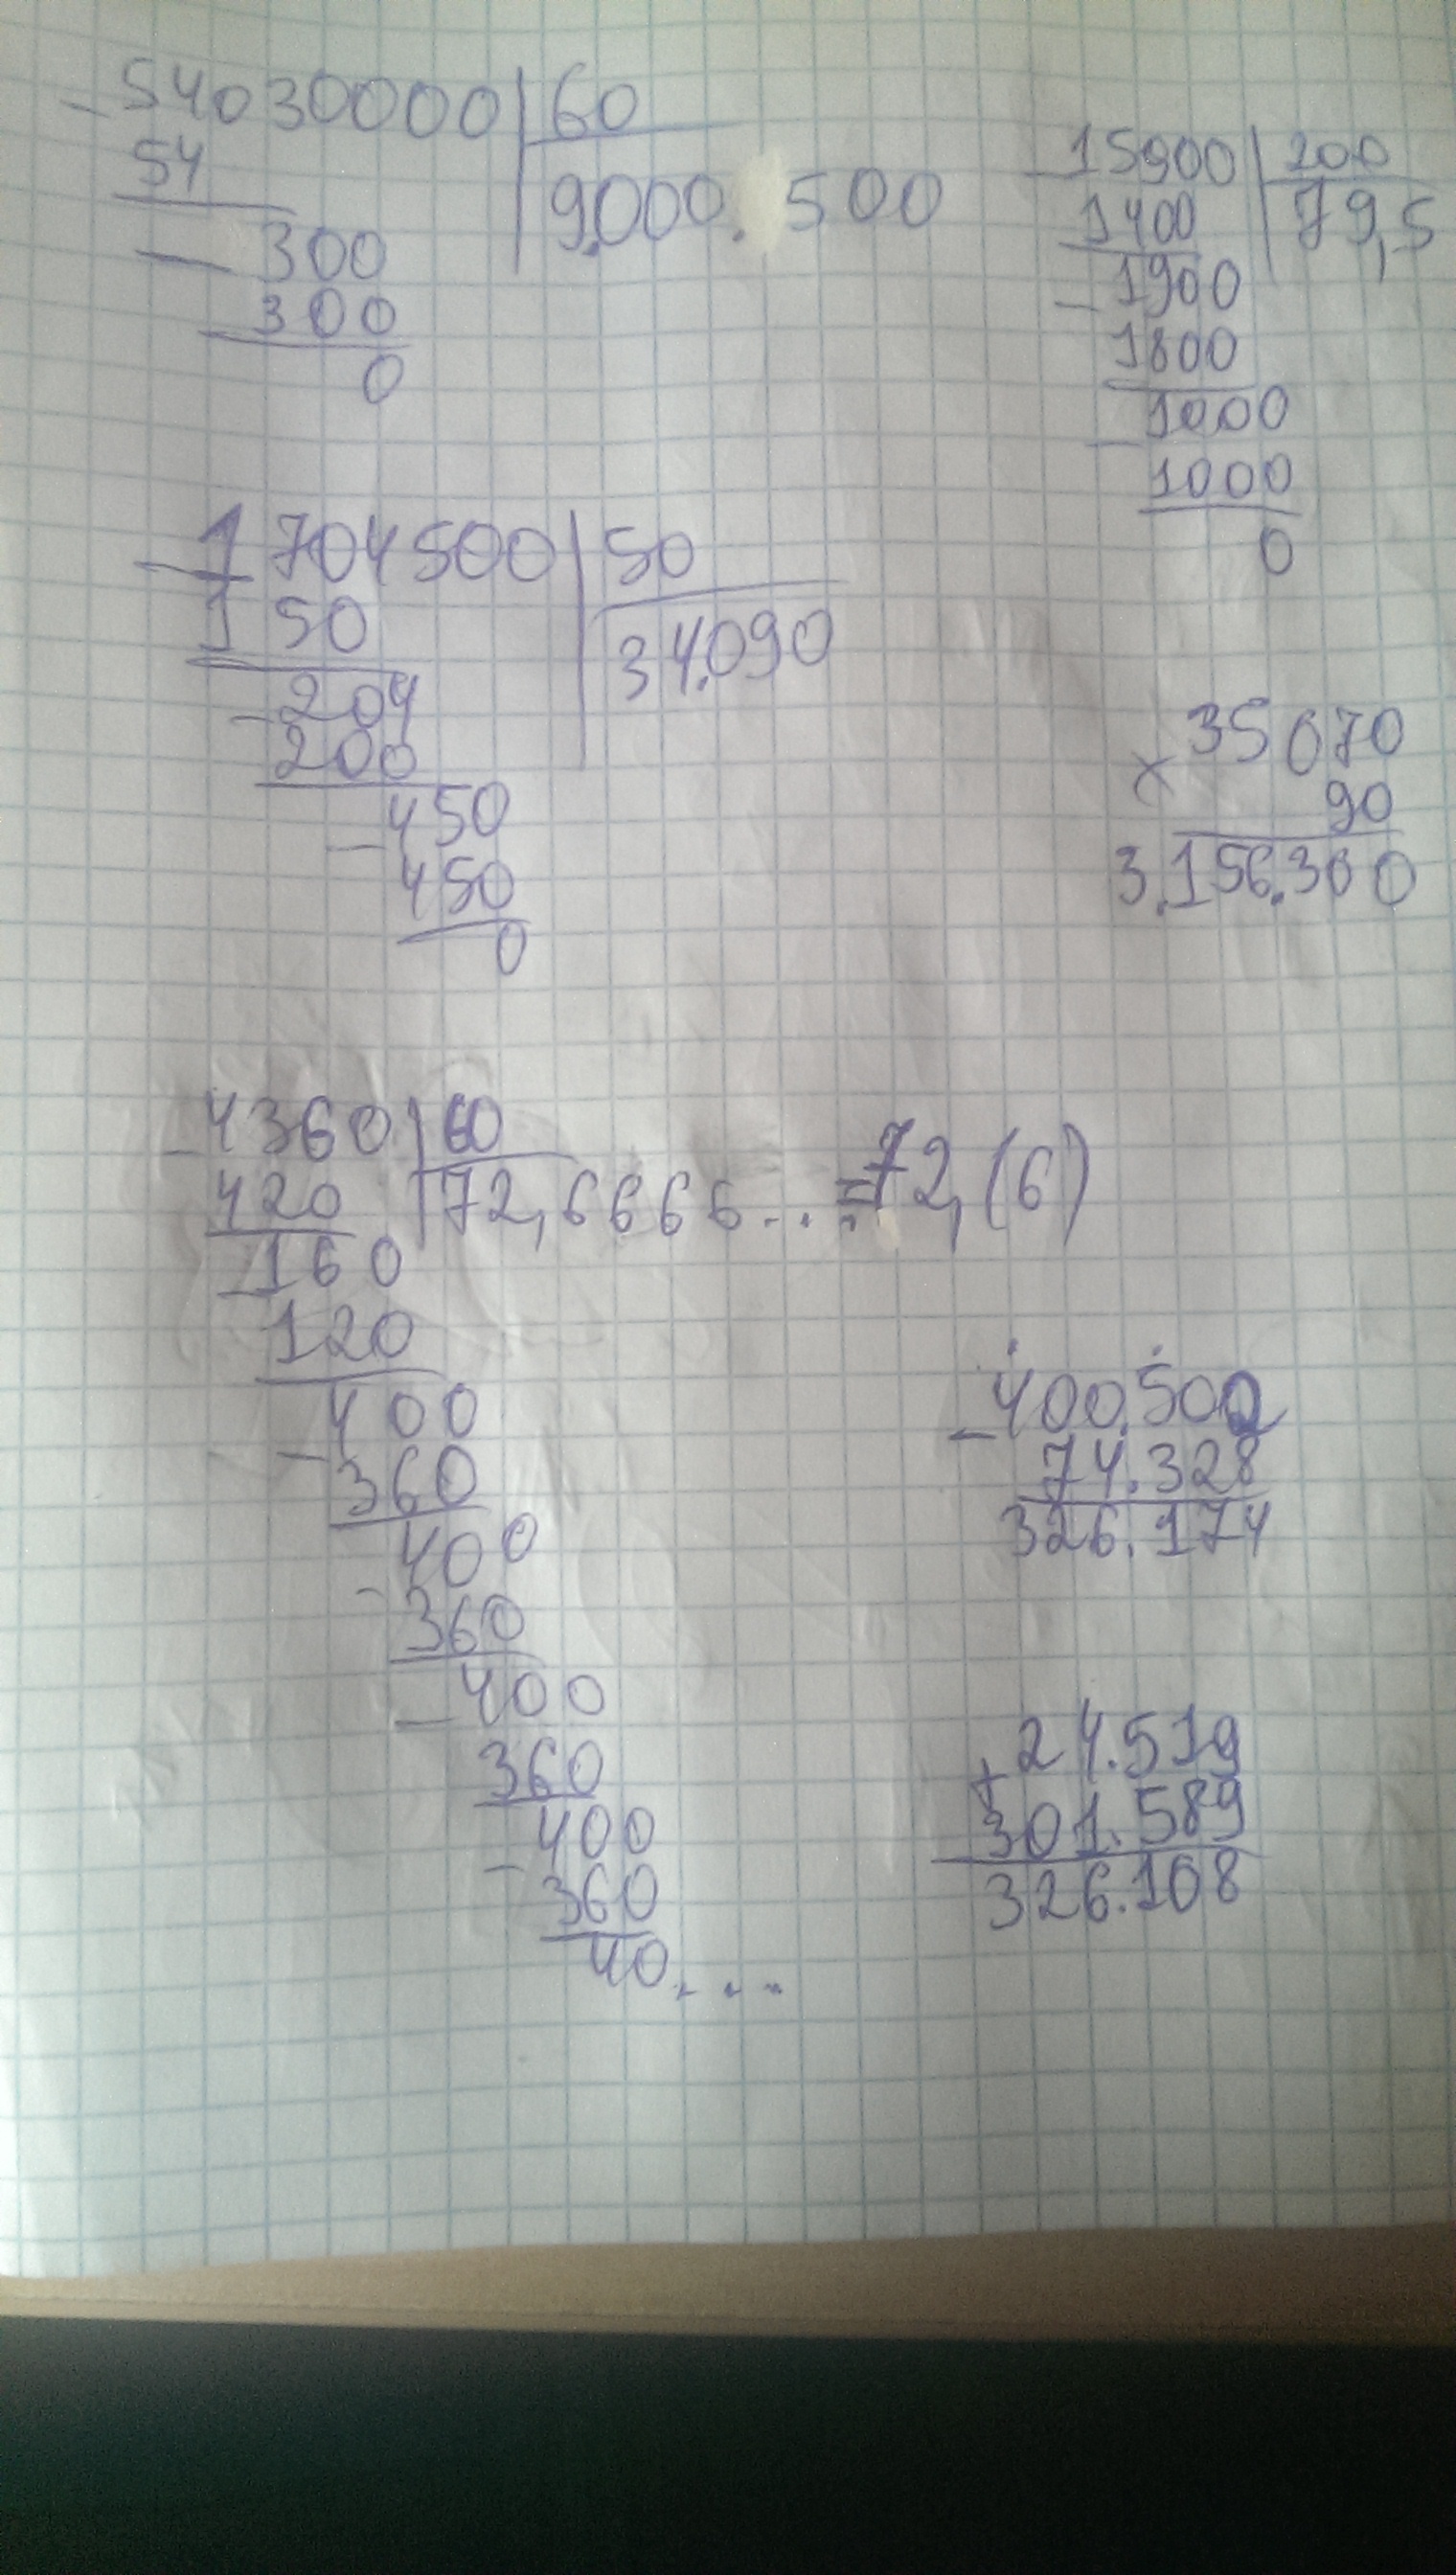 - 54030000 | 60
54 | 9.000.500
- 300
300
0
- 15900 | 200
1400 | 79,5
- 1900
1800
- 1000
1000
0
- 1704500 | 50
150 | 34.090
- 204
200
- 450
450
0
x 35070
90
3.156.300
- 4360 | 60
420 | 72,6666... = 72,(6)
- 160
120
- 400
360
- 400
360
- 400
360
- 400
360
40....
- 400.502
74.328
326.174
+ 24.519
301.589
326.108